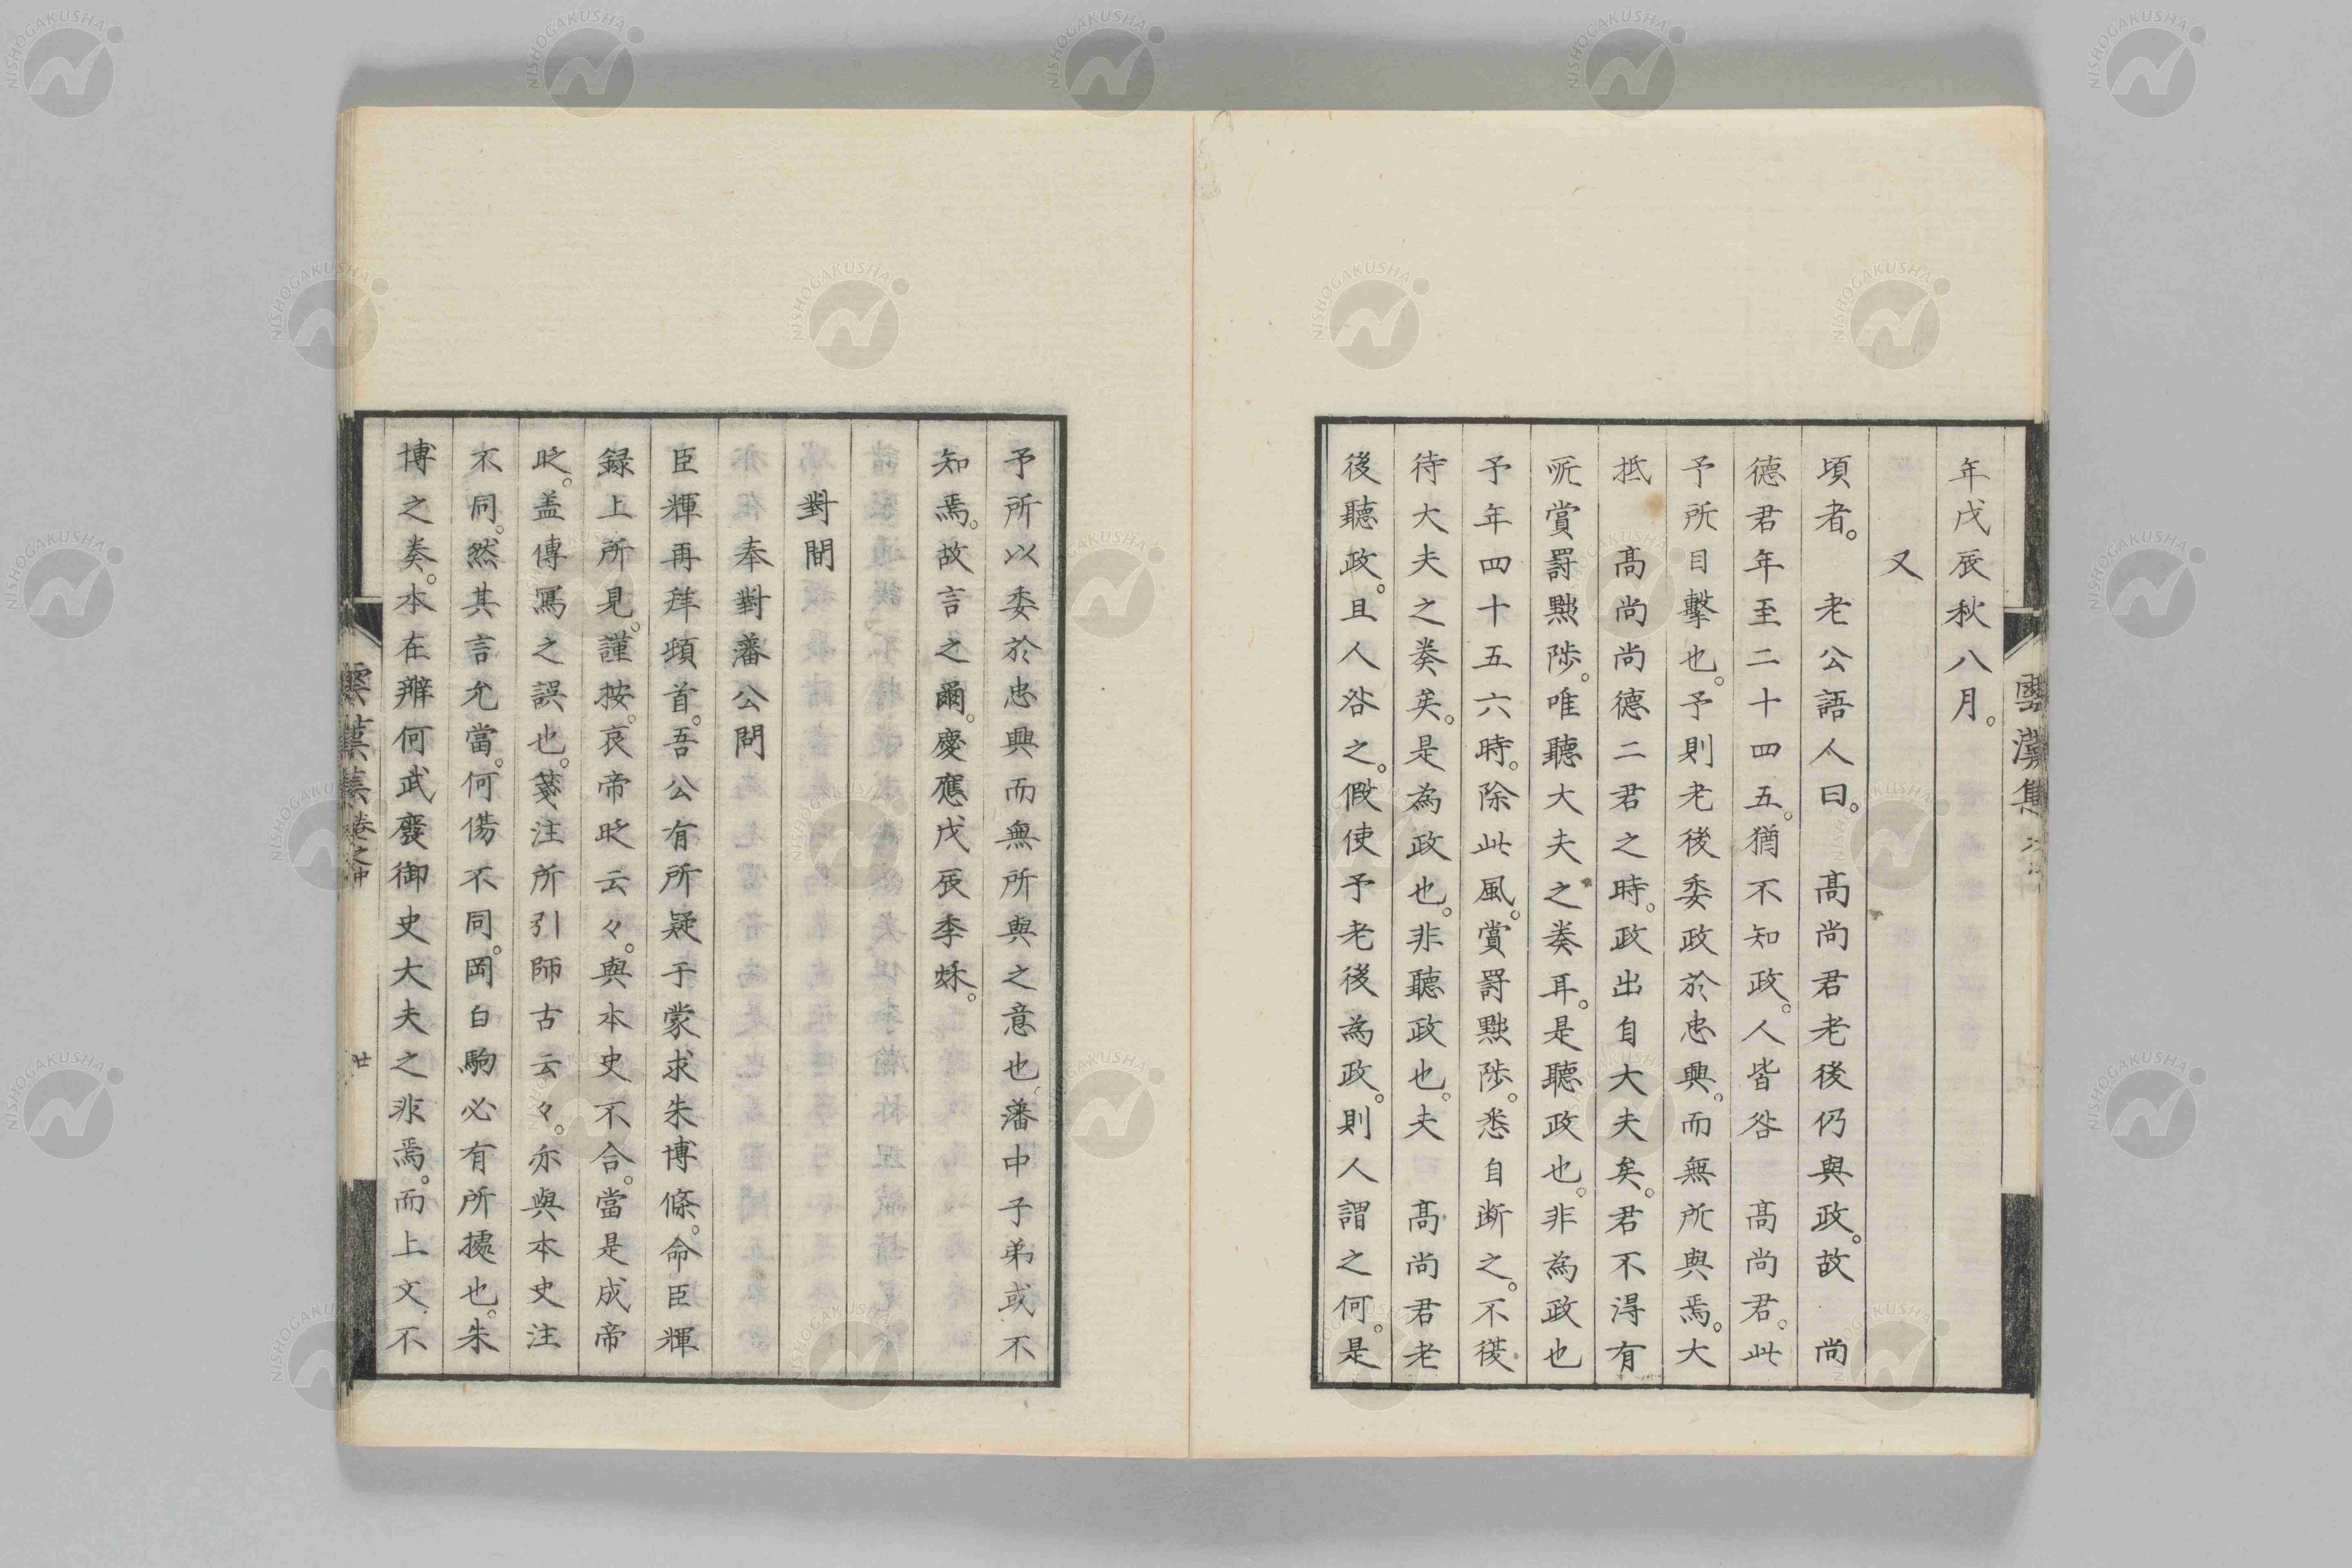 年戊辰秋八月。
又
頃者。　老公語人曰。　高尚君老後仍與政。故　尚
德君年至二十四五。猶不知政。人皆咎　高尚君。此
予所目擊也。予則老後委政於忠興。而無所與焉。大
抵　高尚尚德二君之時。政出自大夫矣。君不得有
所賞罰黜陟。唯聽大夫之奏耳。是聽政也。非為政也
予年四十五六時。除此風。賞罰黜陟。悉自断之。不復
待大夫之奏矣。是為政也。非聽政也。夫　高尚君老
後聽政。且人咎之。假使予老後為政。則人謂之何。是
予所以委於忠興而無所與之意也。藩中子弟或不
知焉。故言之爾。慶應戊辰季秌。
對問
奉對藩公問
臣輝再拜頓首。吾公有所疑于蒙求朱博條。命臣輝
録上所見。謹按。哀帝旼云々。與本史不合。當是成帝
旼。盖傳寫之誤也。箋注所引師古云々。亦與本史注
不同。然其言允當。何傷不同。岡白駒必有所據也。朱
博之奏。本在辨何武廢御史大夫之非焉。而上文不
雲漢集
雲漢集卷之中
廿